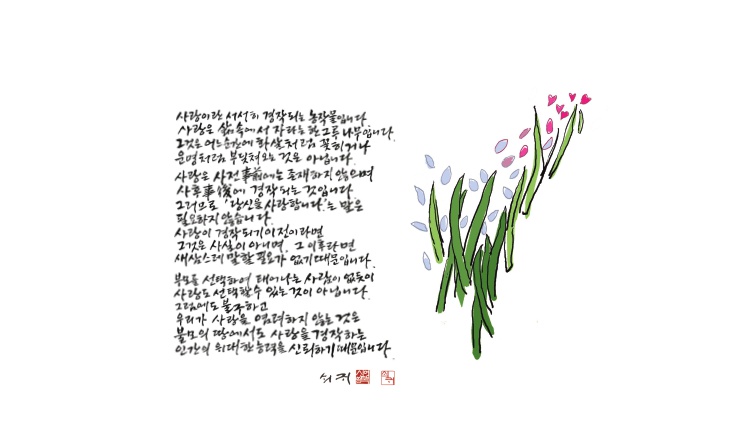 사랑이란 서서히 경작되는 농작물입니다.
사랑은 삶속에서 자라는 한그루 나무입니다.
그것은 어느순간에 화살처럼 꽂히거나
운명처럼 부딪쳐오는 것은 아닙니다.
사랑은 사전事前에는 존재하지않으며
사후事後에 경작되는 것입니다.
그러므로 '당신을 사랑합니다.'는 말은
필요하지 않습니다.
사랑이 경작되기 이전이라면
그것은 사실이 아니며, 그 이후라면
새삼스레 말할 필요가 없기 때문입니다.
부모를 선택하여 태어나는 사람이 없듯이
사랑도 선택할수 있는 것이 아닙니다.
그럼에도 불구하고
우리가 사랑을 염려하지 않는 것은
불모의 땅에서도 사랑을 경작하는
인간의 위대한 능력을 신뢰하기 때문입니다.
쇠귀